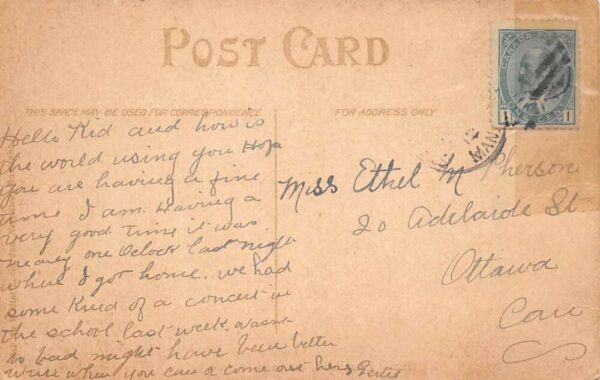 POST CARD
CANADA POSTAGE
1 ONE CENT 1
THIS SPACE MAY BE USED FOR CORRESPONDENCE
FOR ADDRESS ONLY
Hello Kid and how is
the world using you Hope
you are having a fine
time I am. Having a
very good time it was
nearly one Oclock last night
when I got home. we had
some Kind of a concert in
the school last week. wasnt
to bad might have been better
write when you can or come out here
Miss Ethel McPherson
20 Adelaide St
Ottawa
Can